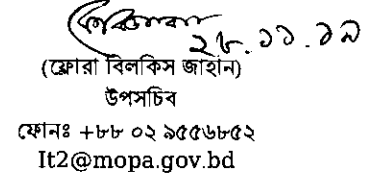 ২৮.১১.১৯
(ফ্লোরা বিলকিস জাহান)
উপসচিব
ফোনঃ +৮৮ ০২ ৯৫৫৬৮৫২
It2@mopa.gov.bd